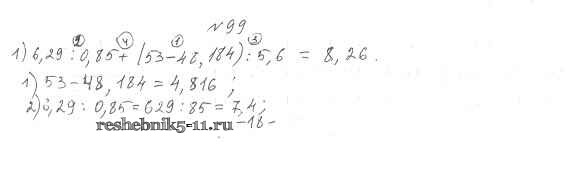 №99
1) 6,29 : 0,85 + (53 - 48,184) : 5,6 = 8,26.
1) 53 - 48,184 = 4,816 ;
2) 6,29 : 0,85 = 629 : 85 = 7,4 ;
reshebnik5-11.ru -18-